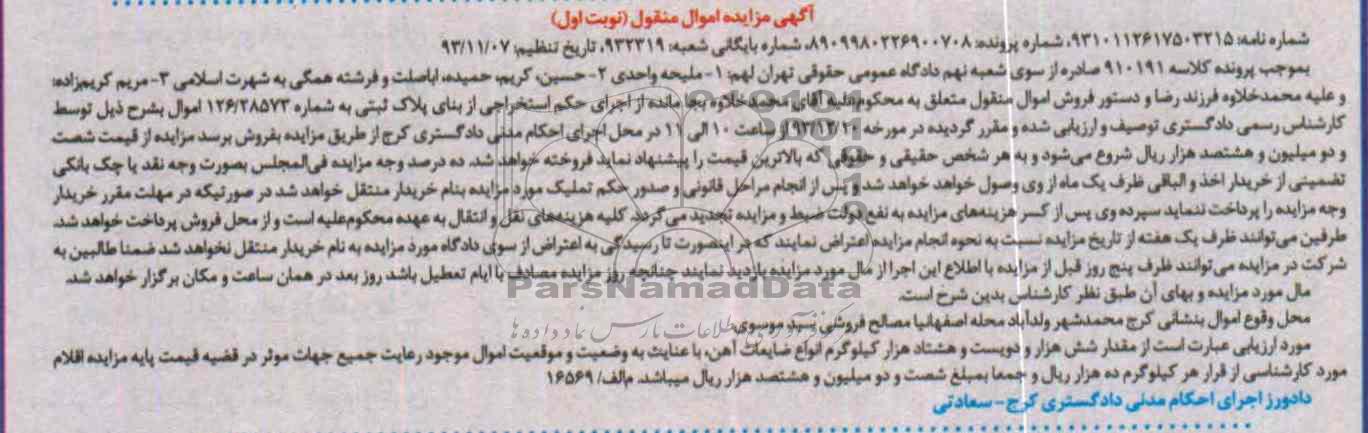 آگهی مزایده اموال منقول (نوبت اول)
شماره نامه: ۹۳۱۰۱۱۲۶۱۷۵۰۳۲۱۵، شماره پرونده: ۸۹۰۹۹۸۰۲۲۶۹۰۰۷۰۸، شماره بایگانی شعبه: ۹۳۲۳۱۹، تاریخ تنظیم: ۹۳/۱۱/۰۷
بموجب پرونده کلاسه ۹۱۰۱۹۱ صادره از سوی شعبه نهم دادگاه عمومی حقوقی تهران لهم: ۱- ملیحه واحدی ۲- حسین، کریم، حمیده، اباصلت و فرشته همگی به شهرت اسلامی ۳- مریم کریم‌زاده:
و علیه محمدخلاوه فرزند رضا و دستور فروش اموال منقول متعلق به محکوم‌علیه آقای محمدخلاوه بجا مانده از اجرای حکم استخراجی از بنای پلاک ثبتی به شماره ۱۲۶/۲۸۵۷۳ اموال بشرح ذیل توسط
کارشناس رسمی دادگستری توصیف و ارزیابی شده و مقرر گردیده در مورخه ۹۳/۱۲/۲۰ از ساعت ۱۰ الی ۱۱ در محل اجرای احکام مدنی دادگستری کرج از طریق مزایده بفروش برسد مزایده از قیمت شصت
و دو میلیون و هشتصد هزار ریال شروع می‌شود و به هر شخص حقیقی و حقوقی که بالاترین قیمت را پیشنهاد نماید فروخته خواهد شد. ده درصد وجه مزایده فی‌المجلس بصورت وجه نقد یا چک بانکی
تضمینی از خریدار اخذ و الباقی ظرف یک ماه از وی وصول خواهد خواهد شد و پس از انجام مراحل قانونی و صدور حکم تملیک مورد مزایده بنام خریدار منتقل خواهد شد در صورتیکه در مهلت مقرر خریدار
وجه مزایده را پرداخت ننماید سپرده وی پس از کسر هزینه‌های مزایده به نفع دولت ضبط و مزایده تجدید می‌گردد. کلیه هزینه‌های نقل و انتقال به عهده محکوم‌علیه است و از محل فروش پرداخت خواهد شد.
طرفین می‌توانند ظرف یک هفته از تاریخ مزایده نسبت به نحوه انجام مزایده اعتراض نمایند که در اینصورت تا رسیدگی به اعتراض از سوی دادگاه مورد مزایده به نام خریدار منتقل نخواهد شد ضمنا طالبین به
شرکت در مزایده می‌توانند ظرف پنج روز قبل از مزایده با اطلاع این اجرا از مال مورد مزایده بازدید نمایند چنانچه روز مزایده مصادف با ایام تعطیل باشد روز بعد در همان ساعت و مکان برگزار خواهد شد.
ParsNamadData
مال مورد مزایده و بهای آن طبق نظر کارشناس بدین شرح است.
محل وقوع اموال بنشانی کرج محمدشهر ولدآباد محله اصفهانیا مصالح فروشی سید موسوی.
مورد ارزیابی عبارت است از مقدار شش هزار و دویست و هشتاد هزار کیلوگرم انواع ضایعات آهن، با عنایت به وضعیت و موقعیت اموال موجود رعایت جمیع جهات موثر در قضیه قیمت پایه مزایده اقلام
مورد کارشناسی از قرار هر کیلوگرم ده هزار ریال و جمعا بمبلغ شصت و دو میلیون و هشتصد هزار ریال میباشد. م‌الف/ ۱۶۵۶۹
دادورز اجرای احکام مدنی دادگستری کرج - سعادتی